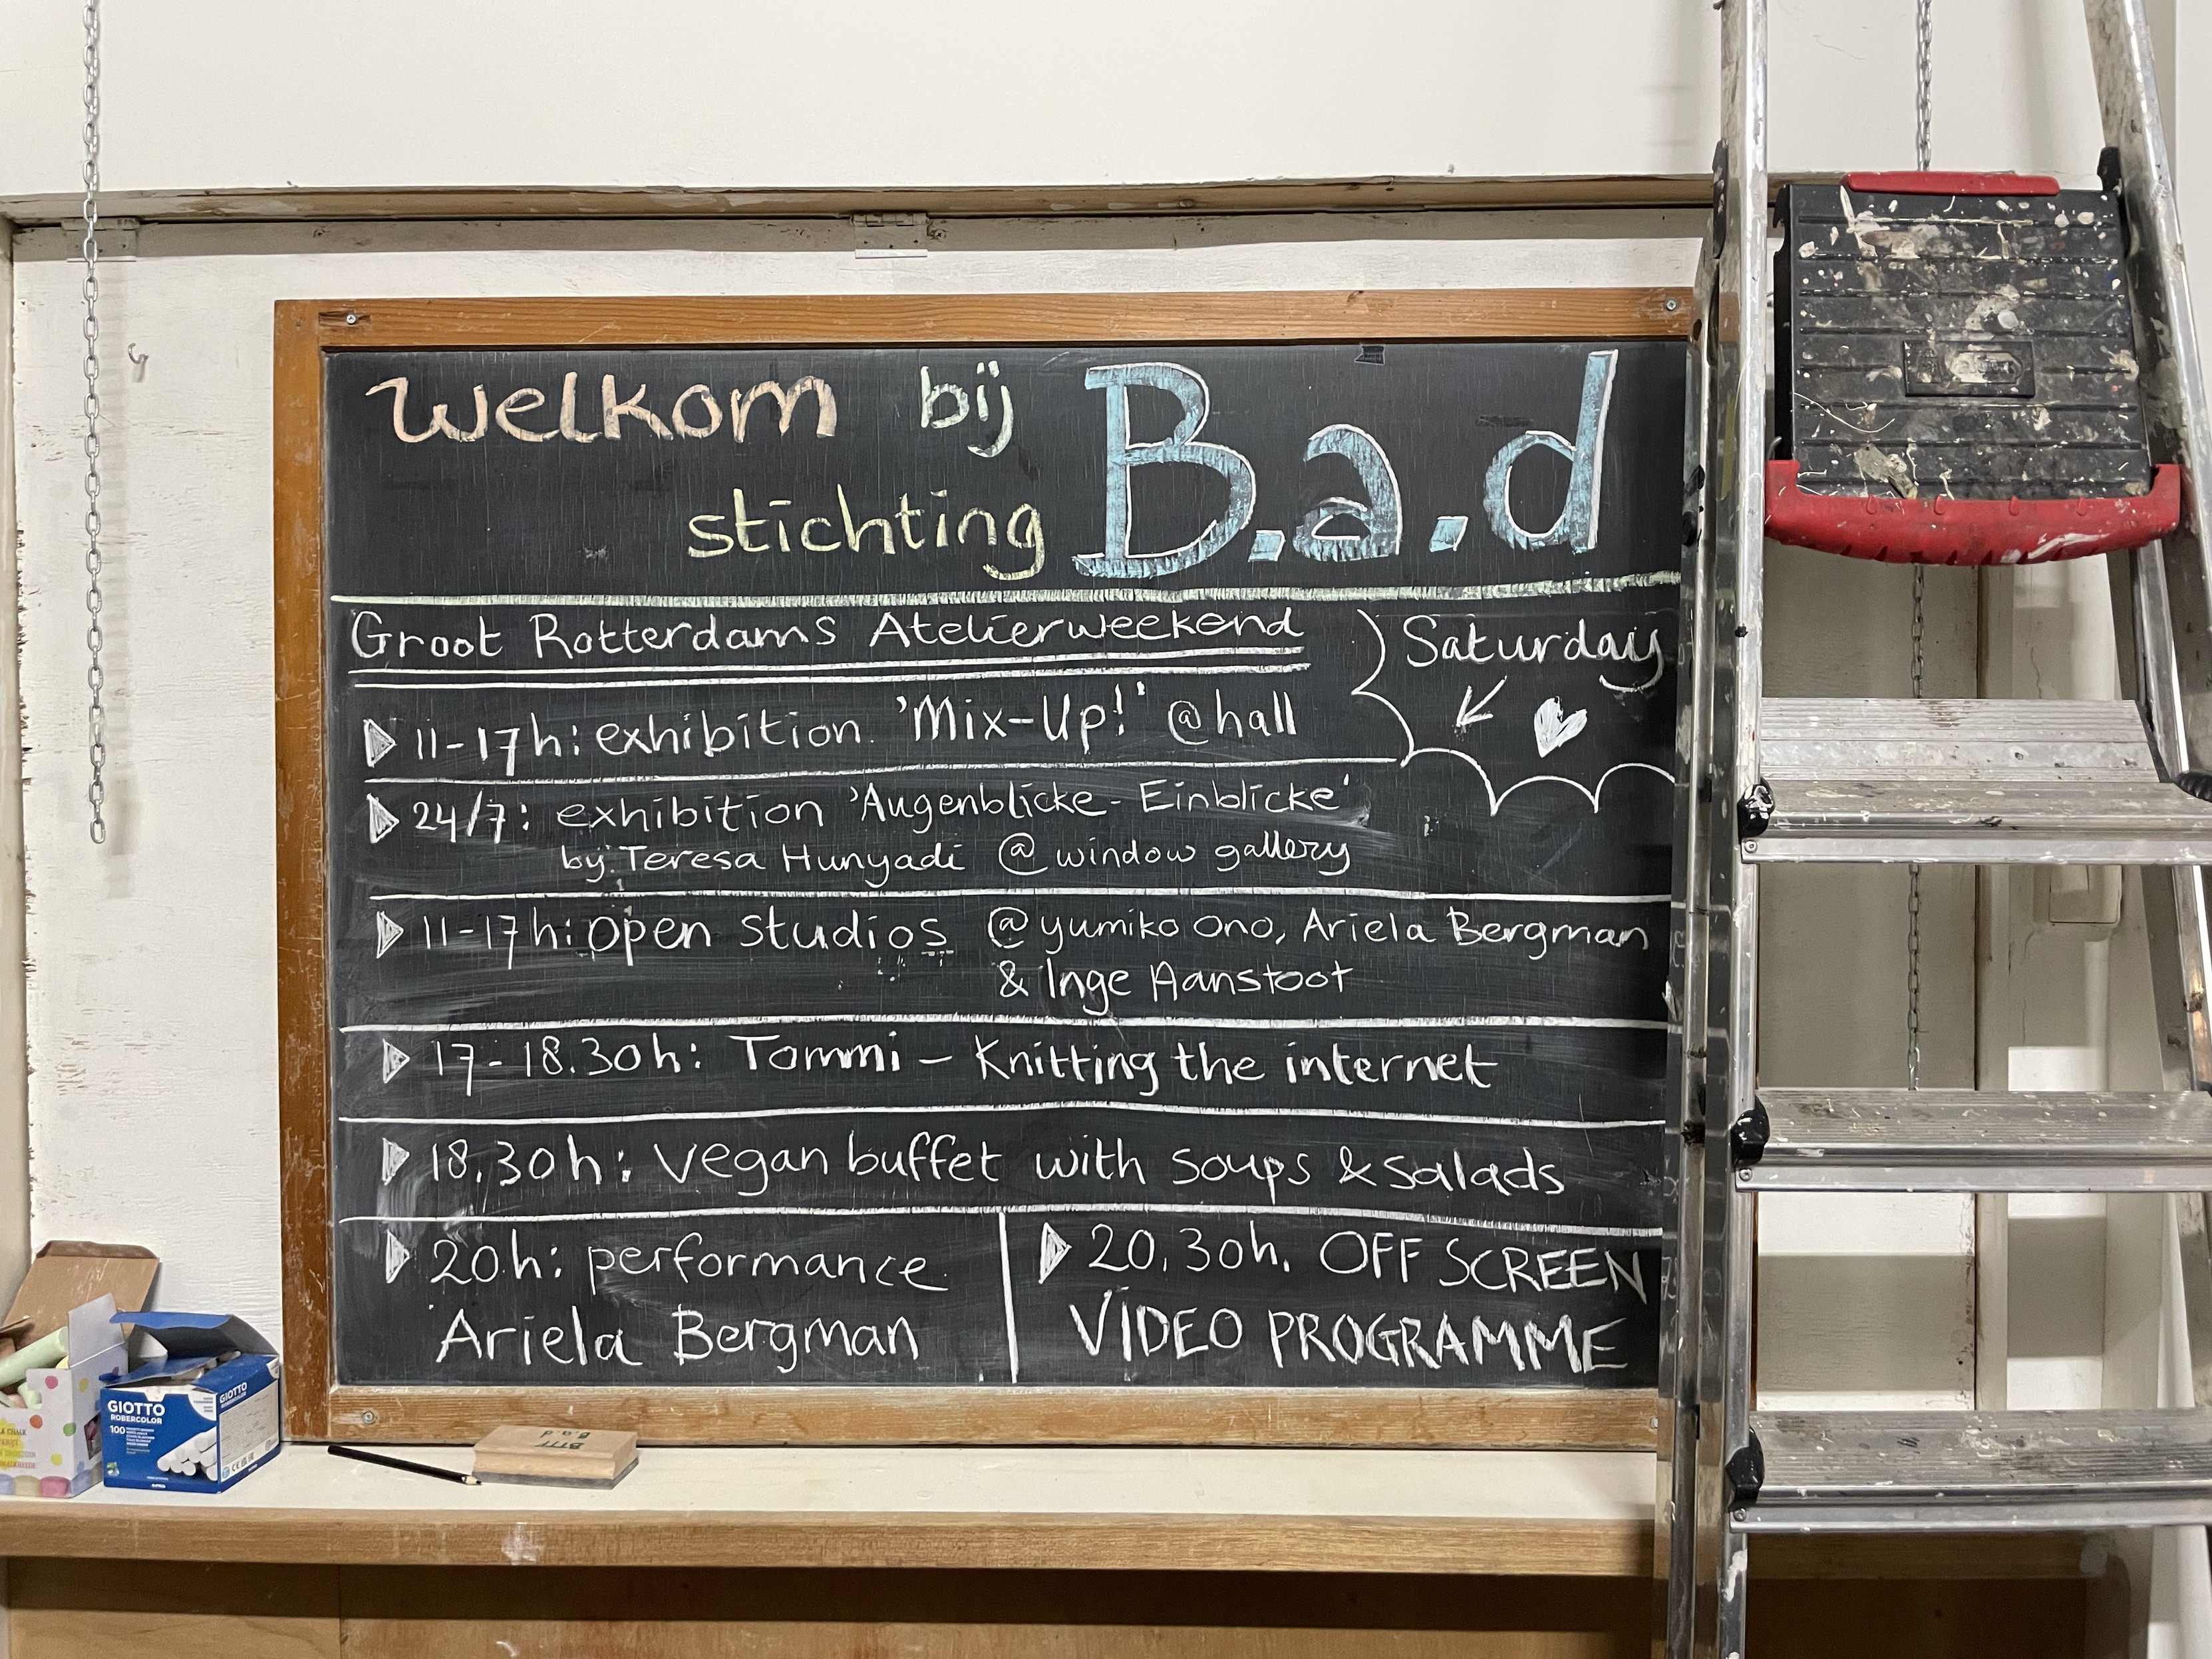 welkom bij B.a.d
stichting
Groot Rotterdams Atelierweekend
Saturday
11-17h: exhibition 'Mix-Up!' @hall
24/7: exhibition 'Augenblicke - Einblicke'
by: Teresa Hunyadi @ window gallery
11-17h: open studios @ yumiko Ono, Ariela Bergman
& Inge Aanstoot
17-18.30h: Tommi - Knitting the internet
18.30h: vegan buffet with soups & salads
20h: performance
Ariela Bergman
20.30h. OFF SCREEN
VIDEO PROGRAMME
GIOTTO
ROBERCOLOR
100
GIOTTO
B.a.d